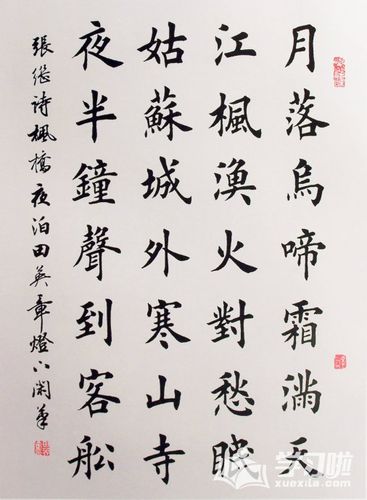 月落烏啼霜滿天
江楓漁火對愁眠
姑蘇城外寒山寺
夜半鐘聲到客船
張繼詩楓橋夜泊田英章燈下閑筆
学习啦
xuexila.com